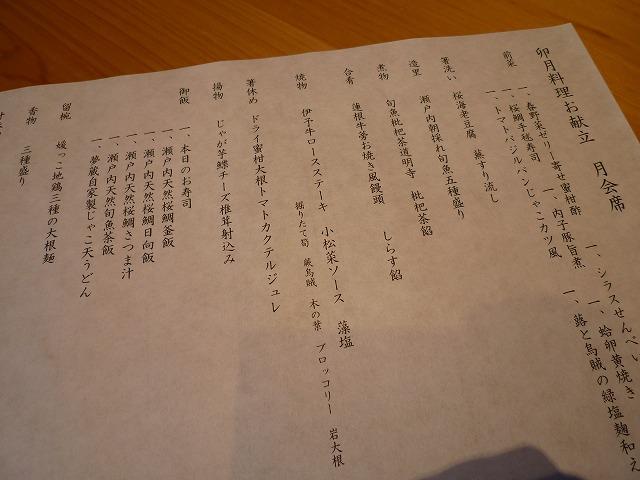 卯月料理お献立　月会席
前菜
一、春野菜ゼリー寄せ蜜柑酢　一、シラスせんべい
一、桜鯛手毬寿司　一、内子豚旨煮　一、蛤卵黄焼き
一、トマトバジルパンじゃこカツ風　一、蕗と烏賊の緑塩麹和え
箸洗い　桜海老豆腐　蕪すり流し
造里　瀬戸内朝採れ旬魚五種盛り
煮物　旬魚枇杷茶道明寺　枇杷茶餡
合肴　蓮根牛蒡お焼き風饅頭　しらす餡
焼物　伊予牛ロースステーキ　小松菜ソース　藻塩
掘りたて筍　蕨烏賊　木の葉　ブロッコリー　岩大根
箸休め　ドライ蜜柑大根トマトカクテルジュレ
揚物　じゃが芋鰆チーズ椎茸射込み
御飯
一、本日のお寿司
一、瀬戸内天然桜鯛釜飯
一、瀬戸内天然桜鯛日向飯
一、瀬戸内天然桜鯛さつま汁
一、瀬戸内天然旬魚茶飯
一、夢蔵自家製じゃこ天うどん
留椀　媛っこ地鶏三種の大根麺
香物　三種盛り